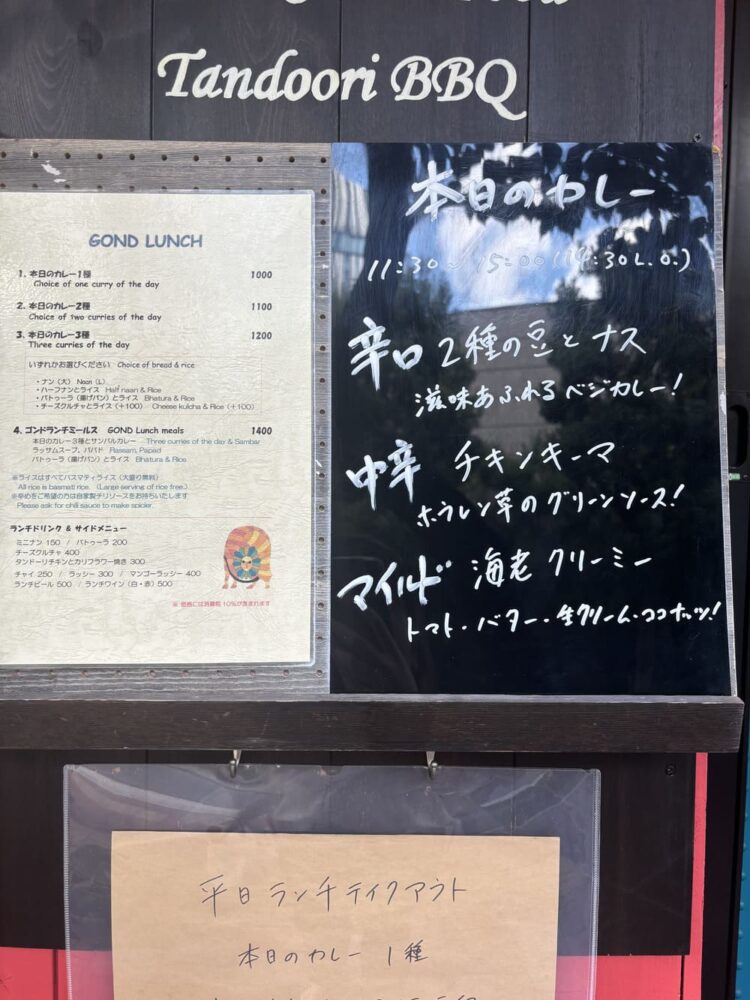 Tandoori BBQ
GOND LUNCH
1. 本日のカレー1種 1000
Choice of one curry of the day
2. 本日のカレー2種 1100
Choice of two curries of the day
3. 本日のカレー3種 1200
Three curries of the day
いずれかお選びください Choice of bread & rice
・ナン(大) Naan (L)
・ハーフナンとライス Half naan & Rice
・バトゥーラ(揚げパン)とライス Bhatura & Rice
・チーズクルチャとライス(+100) Cheese kulcha & Rice (+100)
4. ゴンドランチミールス GOND Lunch meals 1400
本日のカレー3種とサンバルカレー Three curries of the day & Sambar
ラッサムスープ、パパド Rassam, Papad
バトゥーラ(揚げパン)とライス Bhatura & Rice
※ライスはすべてバスマティライス(大盛り無料)
All rice is basmati rice. (Large serving of rice free.)
※辛めをご希望の方は自家製チリソースをお持ちいたします
Please ask for chili sauce to make spicier.
ランチドリンク & サイドメニュー
ミニナン 150 / バトゥーラ 200
チーズクルチャ 400
タンドーリチキンとカリフラワー焼き 300
チャイ 250 / ラッシー 300 / マンゴーラッシー 400
ランチビール 500 / ランチワイン(白・赤) 500
※ 価格には消費税10%が含まれます
本日のカレー
11:30~15:00(14:30L.O.)
辛口 2種の豆とナス
滋味あふれるベジカレー!
中辛 チキンキーマ
ホウレン草のグリーンソース!
マイルド 海老クリーミー
トマト・バター・生クリーム・ココナッツ!
平日ランチテイクアウト
本日のカレー 1種